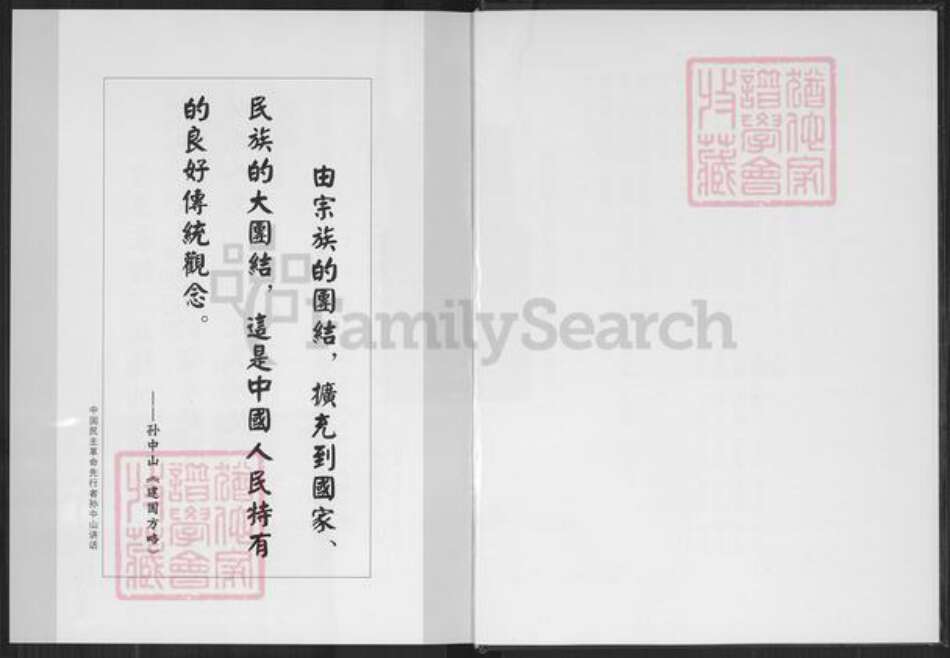 由宗族的團結，擴充到國家、
民族的大團結，這是中國人民特有
的良好傳統觀念。
——孙中山《建国方略》
中国民主革命先行者孙中山讲话
猶他家
譜學會
收藏
猶他家
譜學會
收藏
FamilySearch